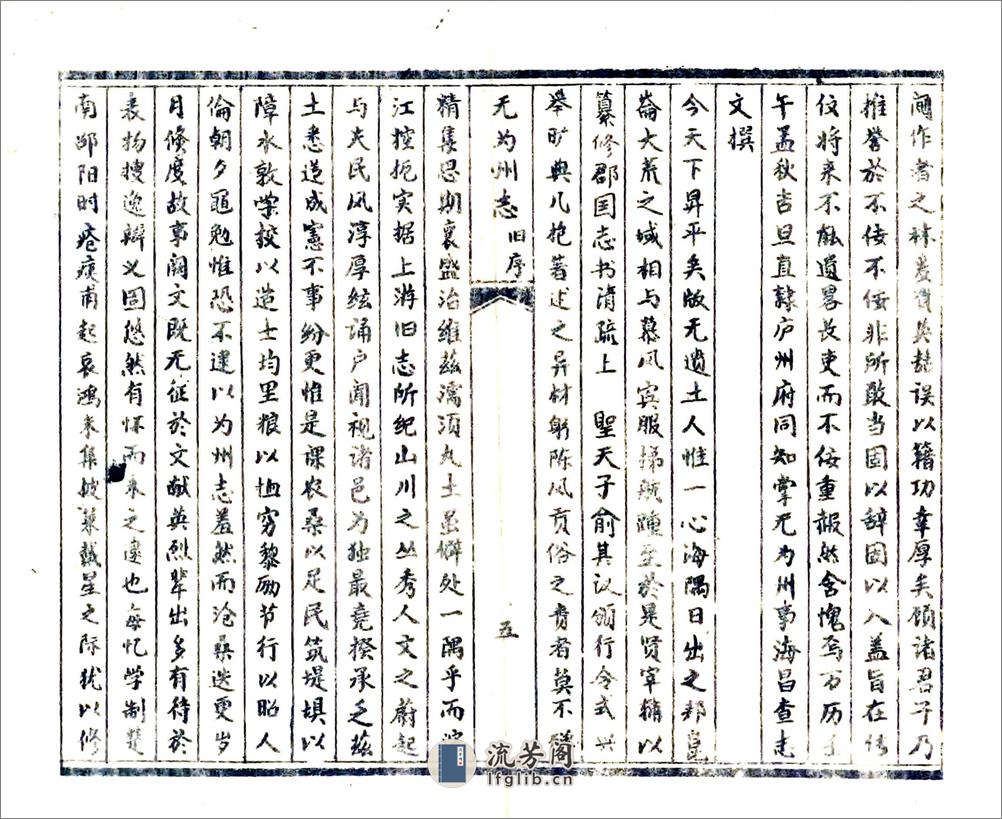 阃作者之林是賫关赫误以籍功幸厚矣顾诸君子乃
推誉於不佞不佞非所敢当固以辞固以入盖旨在传
佼将来不能遗畧长吏而不佞重赧然含愧焉万历壬
午孟秋吉旦直隷庐州府同知掌无为州事海昌查志
文撰
今天下昇平矣版无遗土人惟一心海隅日出之邦皇
崙大荒之域相与慕风宾服梯航踵至於是贤宰辅以
纂修郡国志书清疏上 聖天子俞其议颁行令式兴
举旷典凡抱著述之异材躬陈风贡俗之责者莫不
无为州志 旧序
五
精集思期襄盛治维兹濡须丸土虽僻处一隅乎而
江控扼实据上游旧志所纪山川之丛秀人文之蔚起
与夫民风淳厚绂诵户闻视诸邑为独最堯揆承乏兹
土悉遵成憲不事纷更惟是课农桑以足民筑堤埧以
障水敦学校以造士均里粮以恤穷黎励节行以昭人
倫朝夕黽勉惟恐不逮以为州志羞然而沧桑迭更岁
月倏度故事阙文既无征於文献英烈辈出多有待於
表物搜逸辩义固悠然有怀而未之遑也每忆学制楚
南邵阳时疮痍甫起哀鴻来集披蓁戴星之际犹以修
流芳阁
lfglib.cn